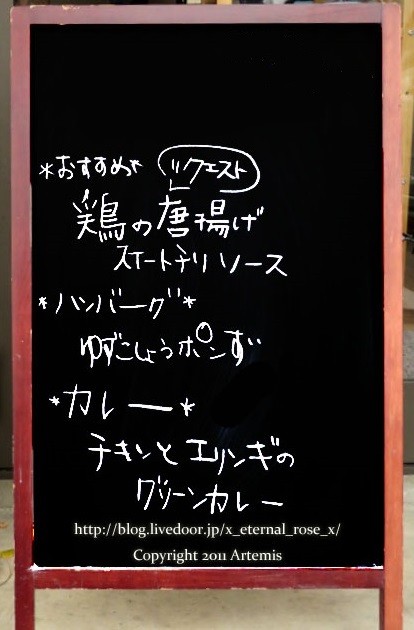 *おすすめ* リクエスト
鶏の唐揚げ
スイートチリソース
*ハンバーグ*
ゆずこしょうポンず
*カレー*
チキンとエリンギの
グリーンカレー
http://blog.livedoor.jp/x_eternal_rose_x/
Copyright 2011 Artemis